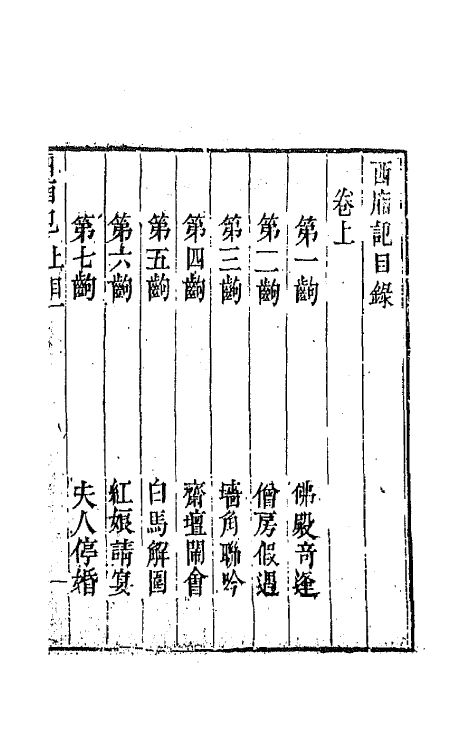 西廂記目錄
卷上
第一齣 佛殿竒逢
第二齣 僧房假遇
第三齣 墻角聯吟
第四齣 齋壇閙會
第五齣 白馬解圍
第六齣 紅娘請宴
第七齣 夫人停婚
西廂記上目 一